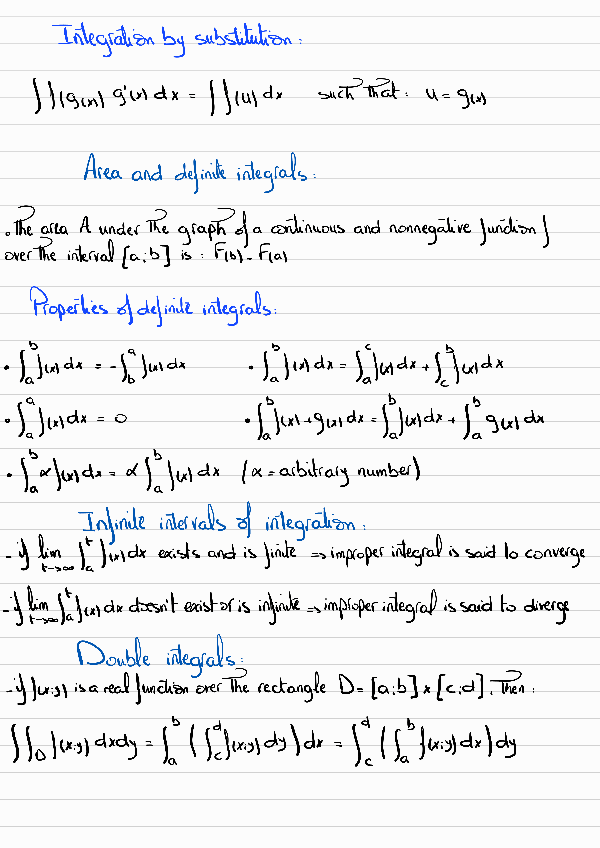 Integration by substitution :
∫ f(g(x)) g'(x) dx = ∫ f(u) dx such that : u = g(x)
Area and definite integrals :
. The area A under the graph of a continuous and nonnegative function f
over the interval [a;b] is : F(b) - F(a)
Properties of definite integrals :
• ∫_a^b f(x) dx = - ∫_b^a f(x) dx • ∫_a^b f(x) dx = ∫_a^c f(x) dx + ∫_c^b f(x) dx
• ∫_a^a f(x) dx = 0 • ∫_a^b f(x) + g(x) dx = ∫_a^b f(x) dx + ∫_a^b g(x) dx
• ∫_a^b α f(x) dx = α ∫_a^b f(x) dx (α = arbitrary number)
Infinite intervals of integration :
- if lim_{t→∞} ∫_a^t f(x) dx exists and is finite ⇒ improper integral is said to converge
- if lim_{t→∞} ∫_a^t f(x) dx doesn't exist or is infinite ⇒ improper integral is said to diverge
Double integrals :
- if f(x;y) is a real function over the rectangle D = [a;b] × [c;d]. Then :
∫∫_D f(x;y) dxdy = ∫_a^b ( ∫_c^d f(x;y) dy ) dx = ∫_c^d ( ∫_a^b f(x;y) dx ) dy